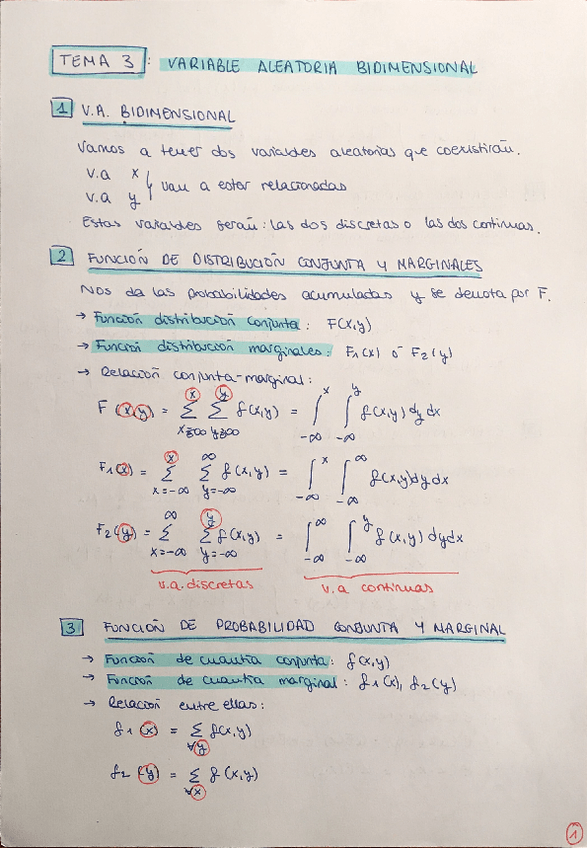 TEMA 3: VARIABLE ALEATORIA BIDIMENSIONAL
1 V.A. BIDIMENSIONAL
Vamos a tener dos variables aleatorias que coexistirán.
v.a x
v.a y } van a estar relacionadas
Estas variables serán: las dos discretas o las dos continuas.
2 FUNCIÓN DE DISTRIBUCIÓN CONJUNTA Y MARGINALES
Nos da las probabilidades acumuladas y se denota por F.
→ Función distribución conjunta: F(x,y)
→ Función distribución marginales: F₁(x) ó F₂(y)
→ Relación conjunta-marginal:
F(x,y) = Σ_{x=-∞}^{x} Σ_{y=-∞}^{y} f(x,y) = ∫_{-∞}^{x} ∫_{-∞}^{y} f(x,y) dy dx
F₁(x) = Σ_{x=-∞}^{x} Σ_{y=-∞}^{∞} f(x,y) = ∫_{-∞}^{x} ∫_{-∞}^{∞} f(x,y) dy dx
F₂(y) = Σ_{x=-∞}^{∞} Σ_{y=-∞}^{y} f(x,y) = ∫_{-∞}^{∞} ∫_{-∞}^{y} f(x,y) dy dx
v.a. discretas v.a continuas
3 FUNCIÓN DE PROBABILIDAD CONJUNTA Y MARGINAL
→ Función de cuantía conjunta: f(x,y)
→ Función de cuantía marginal: f₁(x), f₂(y)
→ Relación entre ellas:
f₁(x) = Σ_{∀y} f(x,y)
f₂(y) = Σ_{∀x} f(x,y)
1